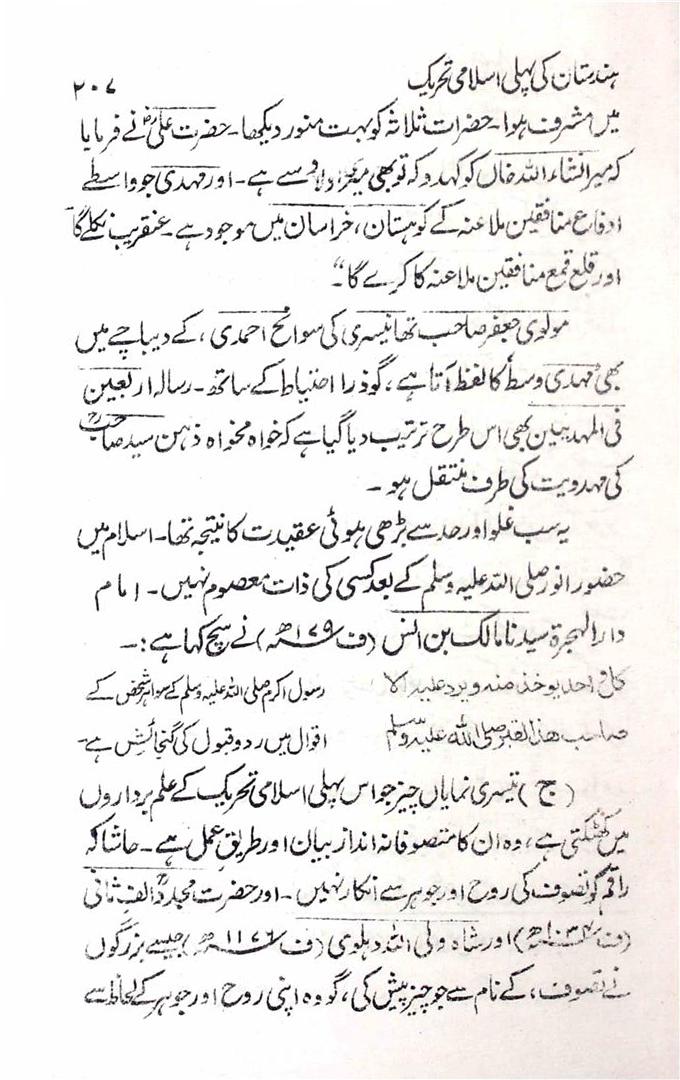 ہندستان کی پہلی اسلامی تحریک ۲۰۷
میں مشرف ہوا۔ حضرات ثلاثہ کو بہت منور دیکھا۔ حضرت علیؓ نے فرمایا
کہ میر انشاء اللہ خاں کو کہدو کہ تو بھی میری اولاد سے ہے۔ اور مہدی جو واسطے
ادفاع منافقین ملاعنہ کے کوہستان، خراسان میں موجود ہے۔ عنقریب نکلے گا
اور قلع قمع منافقین ملاعنہ کا کرے گا“۔
مولوی جعفر صاحب تھانیسری کی سوانح احمدی، کے دیباچے میں
بھی مہدی وسط کا لفظ آتا ہے، گو ذرا احتیاط کے ساتھ۔ رسالہ اربعین
فی المہدیین بھی اس طرح ترتیب دیا گیا ہے کہ خواہ مخواہ ذہن سید صاحبؒ
کی مہدویت کی طرف منتقل ہو۔
یہ سب غلو اور حد سے بڑھی ہوئی عقیدت کا نتیجہ تھا۔ اسلام میں
حضور انور صلی اللہ علیہ وسلم کے بعد کسی کی ذات معصوم نہیں۔ امام
دار الہجرۃ سیدنا مالک بن انس (ف ۱۷۹ھ) نے سچ کہا ہے:۔
کل احد یوخذ منہ و یرد علیہ الا رسول اکرم صلی اللہ علیہ وسلم کے سوا ہر شخص کے
صاحب ھذا القبر صلی اللہ علیہ وسلم اقوال میں رد و قبول کی گنجائش ہے۔
(ج) تیسری نمایاں چیز جو اس پہلی اسلامی تحریک کے علم برداروں
میں کھٹکتی ہے، وہ ان کا متصوفانہ انداز بیان اور طریق عمل ہے۔ حاشا کہ
راقم کو تصوف کی روح اور جوہر سے انکار نہیں۔ اور حضرت مجدد الف ثانیؒ
(ف ۱۰۳۴ھ) اور شاہ ولی اللہ دہلوی (ف ۱۱۷۶ھ) جیسے بزرگوں
نے تصوف، کے نام سے جو چیز پیش کی، گو وہ اپنی روح اور جوہر کے لحاظ سے